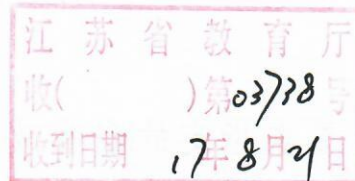 江苏省教育厅
收( )第03738号
收到日期 17年8月21日